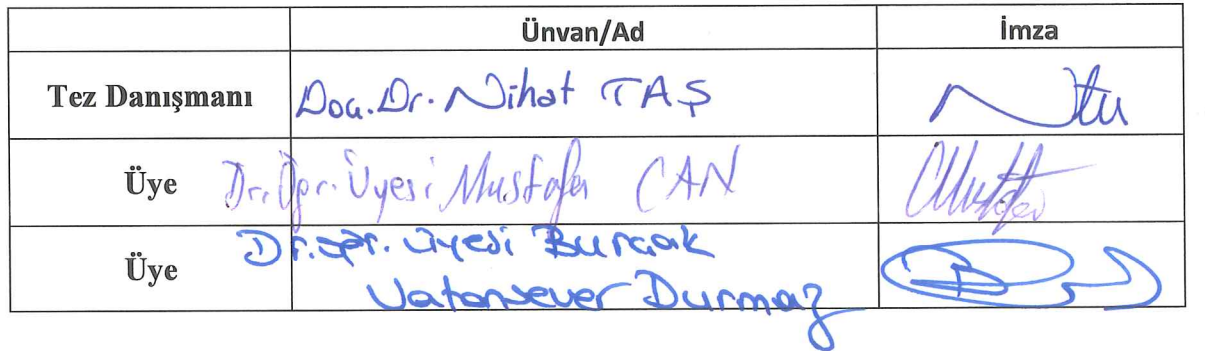 Ünvan/Ad İmza
Tez Danışmanı Doç.Dr. Nihat TAŞ
Üye Dr. Öğr. Üyesi Mustafa CAN
Üye Dr. Öğr. Üyesi Burçak
Vatansever Durmaz